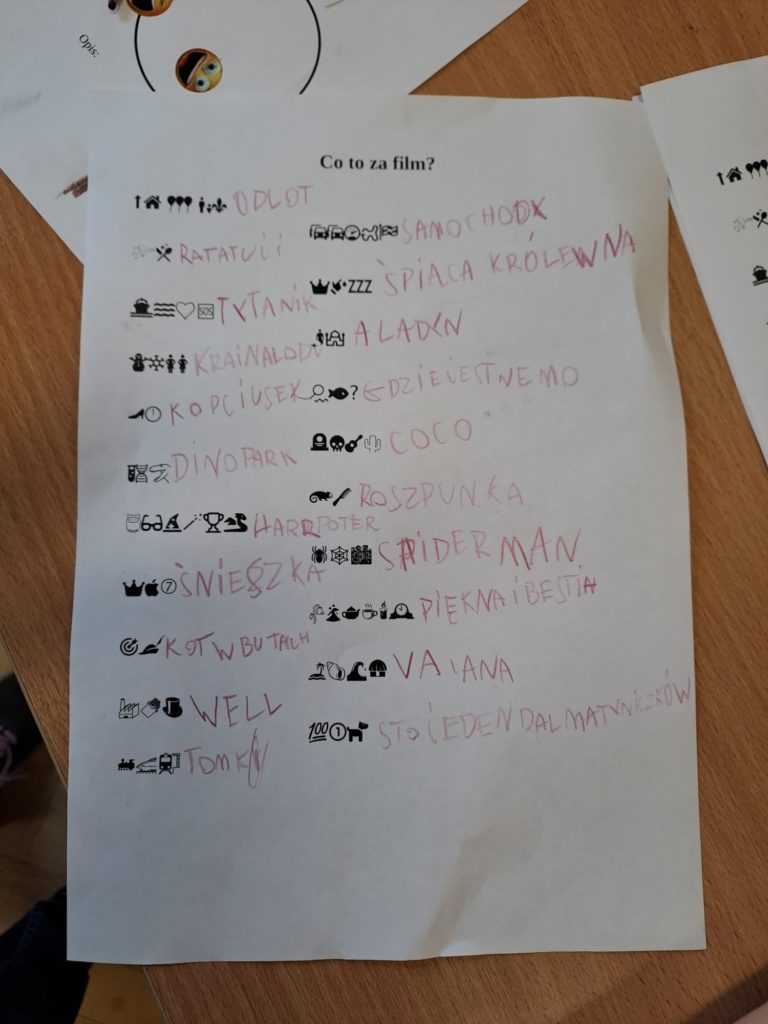 Opis:
Co to za film?
ODLOT
RATATUII
TYTANIK
SOS
KRAINALODU
KOPCIUSEK
DINOPARK
HARRPOTER
7
ŚNIESZKA
KOT W BUTACH
WELL
TOMK
SAMOCHODY
ZZZ
ŚPIĄCA KRÓLEWNA
ALADYN
?
GDZIEIESTNEMO
COCO
ROSZPUNKA
SPIDERMAN
PIĘKNA i BESTIA
VAIANA
100
1
STO iEDEN DALMATYNICZKÓW